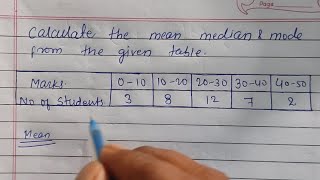 Page
Calculate the mean median & mode
from the given table.
Marks 0-10 10-20 20-30 30-40 40-50
No of Students 3 8 12 7 2
Mean